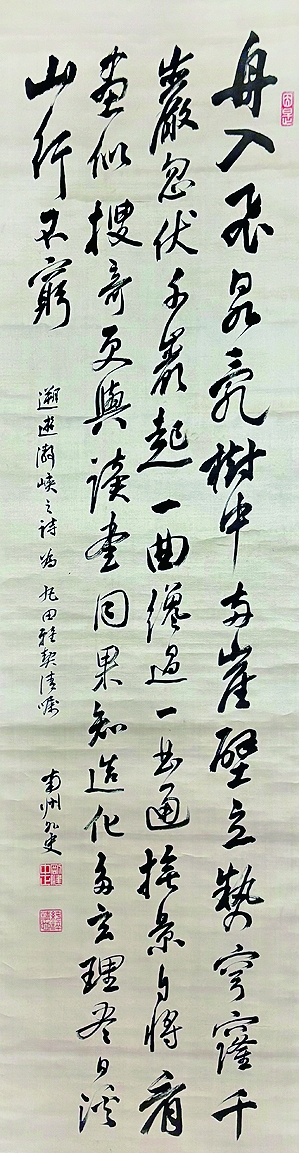 舟入飛泉亂樹中兩崖壁立勢穹窿千
巖忽伏千巖起一曲纔過一曲通撫景將看
畫似搜奇更與讀書同果知造化多玄理盡日溪
山行不窮
遡遊瀞峽之詩為田雅契清嘱 南州外史